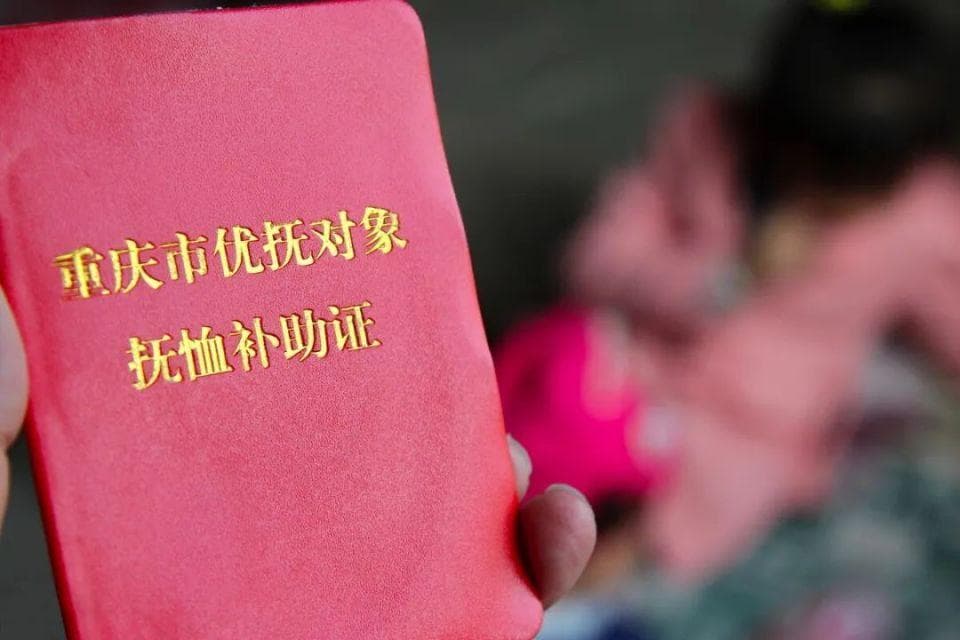 重庆市优抚对象
抚恤补助证